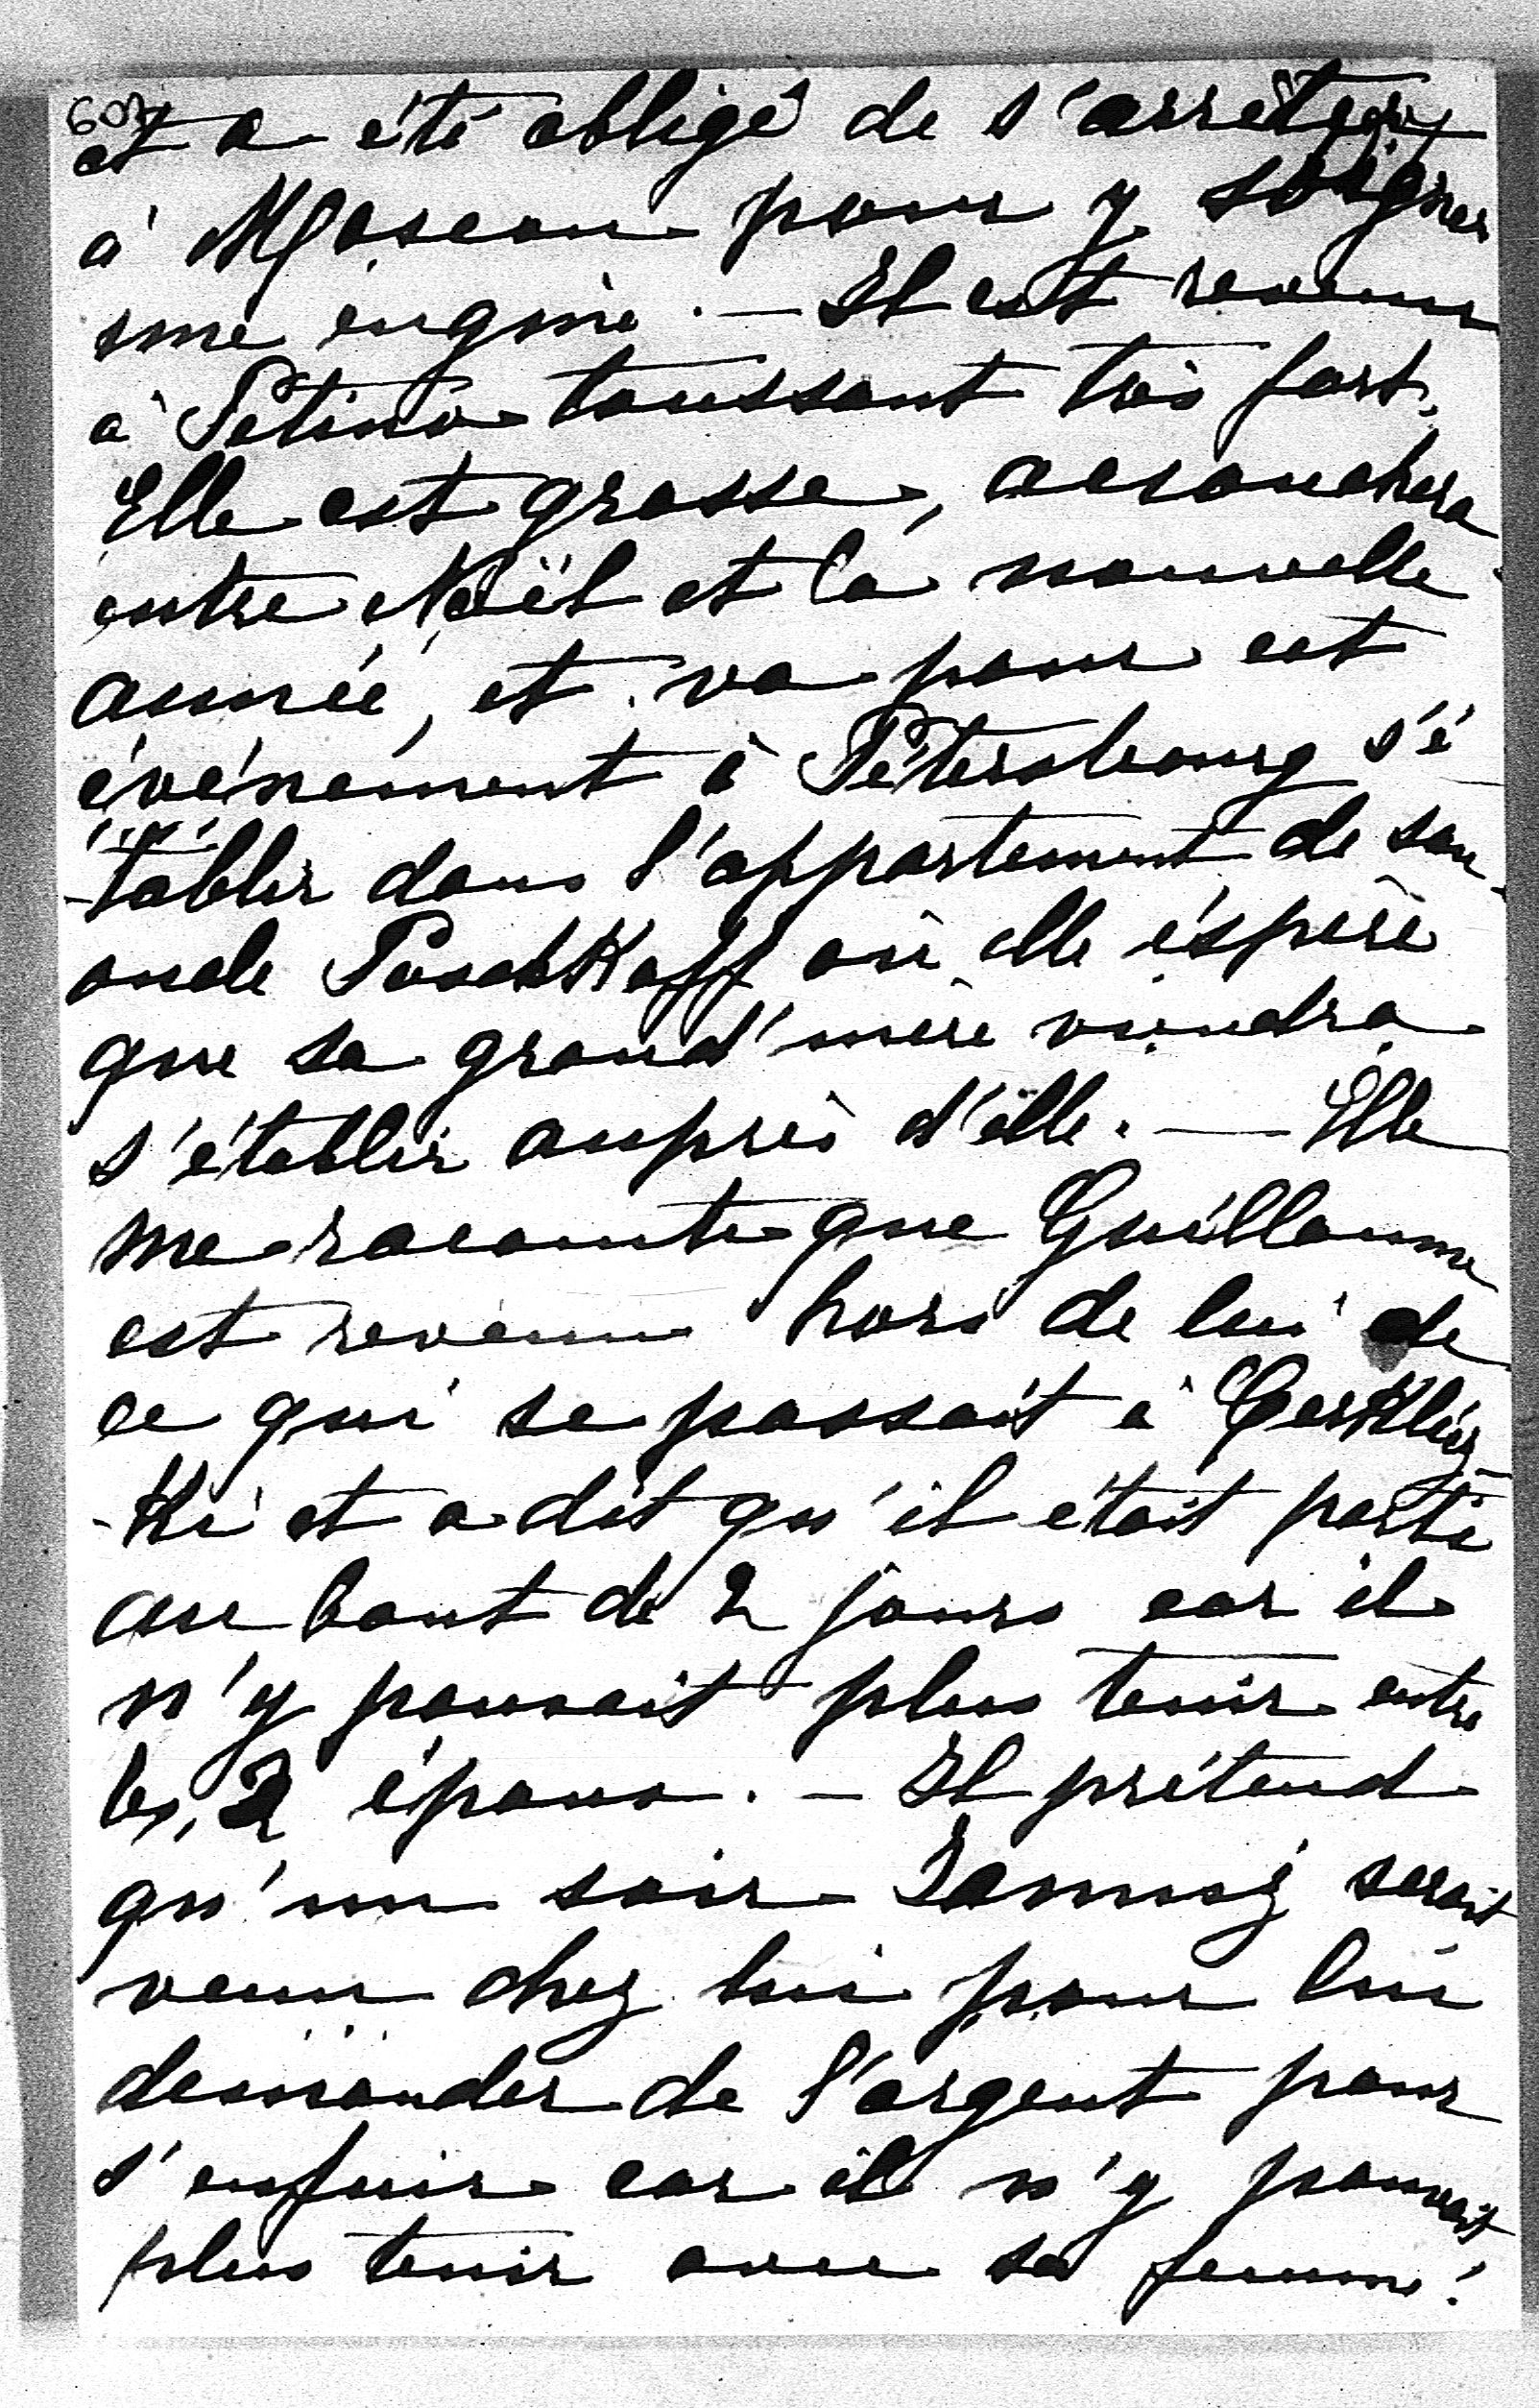 607
et a été obligé de s'arrêter
à Moscou pour y soigner
une engine. — Il est revenu
à Petino toussant très fort.
Elle est grosse, accouchera
entre Noël et la nouvelle
année, et va pour cet
événement à Pétersbourg s'é-
-tablir dans l'appartement de son
oncle PaschKoff où elle éspère
que sa grand'mère viendra
s'établir auprès d'elle. — Elle
me raconte que Guillaume
est revenu hors de lui de
ce qui se passait à
et a dit qu'il était parti
au bout de 2 jours car il
n'y pouvait plus tenir entre
les 2 époux. — Il prétend
qu'un soir serait
venu chez lui pour lui
demander de l'argent pour
s'enfuir car il n'y pouvait
plus tenir avec sa femme!